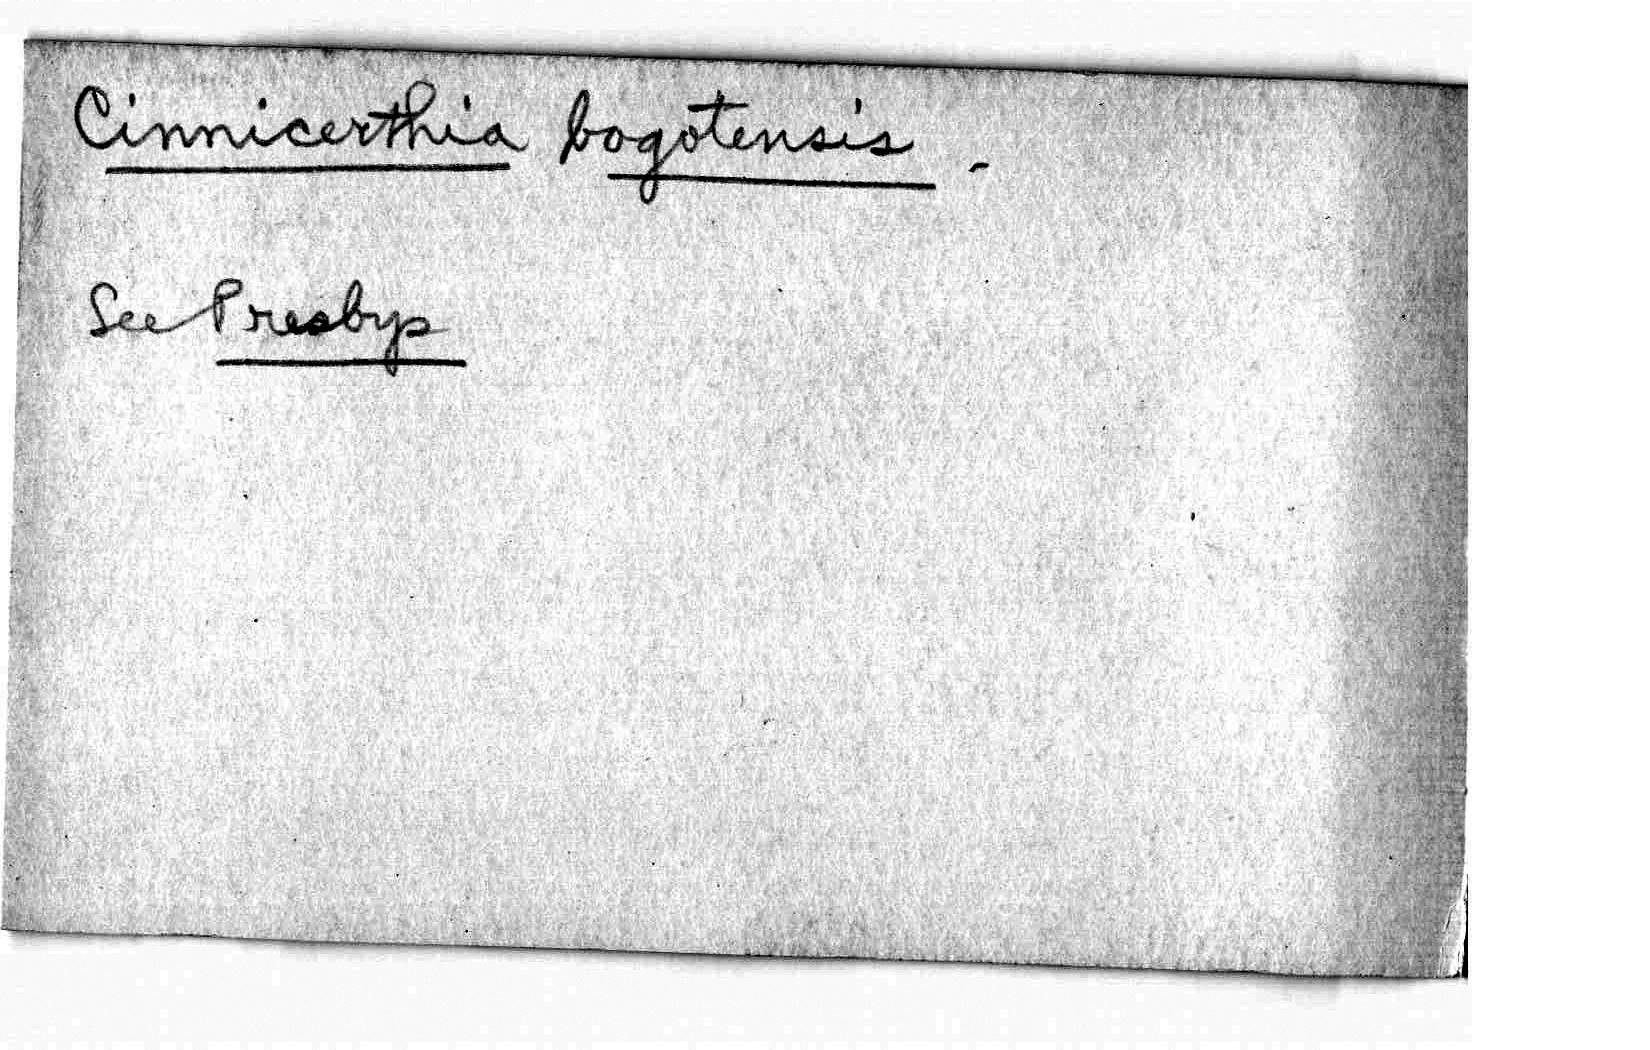 Cinnicerthia bogotensis.
See Presbys